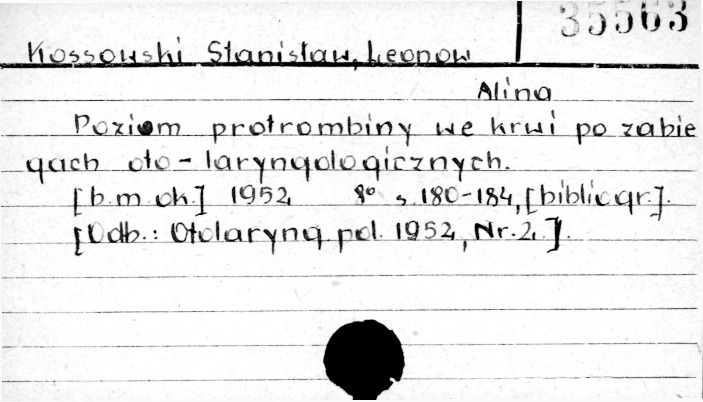 35563
Kossowski Stanisław, Leonow
Alina
Poziom protrombiny we krwi po zabie
gach oto-laryngologicznych.
[b.m.ok.] 1952 8° s. 180-184, [bibliogr.].
[Odb.: Otolaryng. pol. 1952, Nr. 2.].